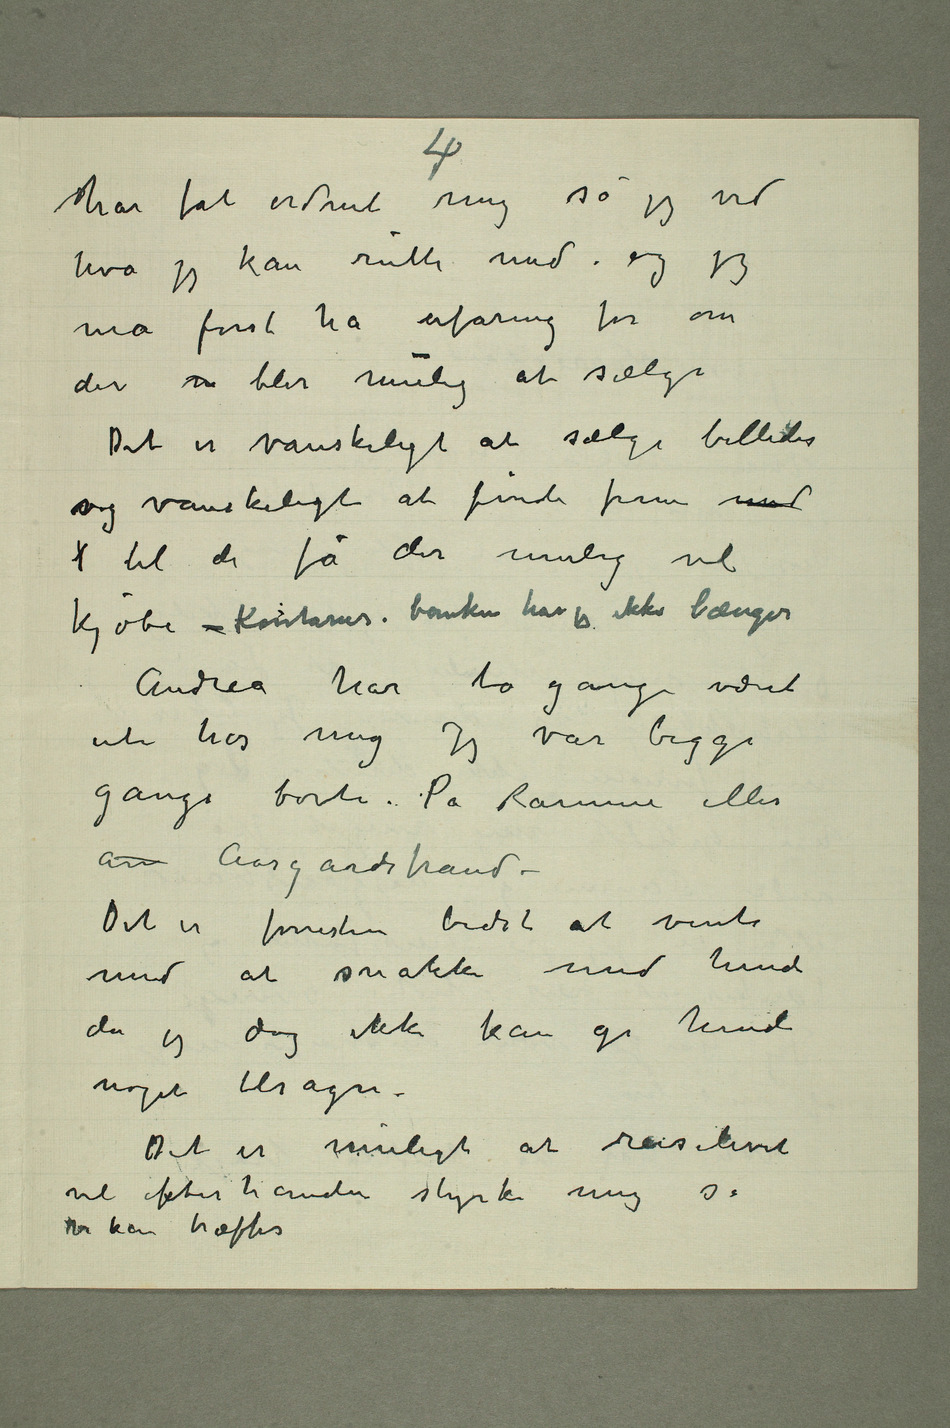 4
har fåt ordnet mig så jeg ved
hva jeg kan rutte med. og jeg
må først ha erfaring for om
der blir mulig at sælge
Det er vanskeligt at sælge billeder
og vanskeligt at finde frem med
til de få der mulig vil
kjøbe – banken har jeg ikke længer
Andrea har to gange været
ute hos mig Jeg var begge
gange borte. På Ramme eller
Aasgaardstrand –
Det er forresten bedst at vente
med at snakke med hende
da jeg dog ikke kan gi hende
noget tilsagn.
Det er muligt at reiselivet
vil efterhånden styrke mig så
vi kan træffes